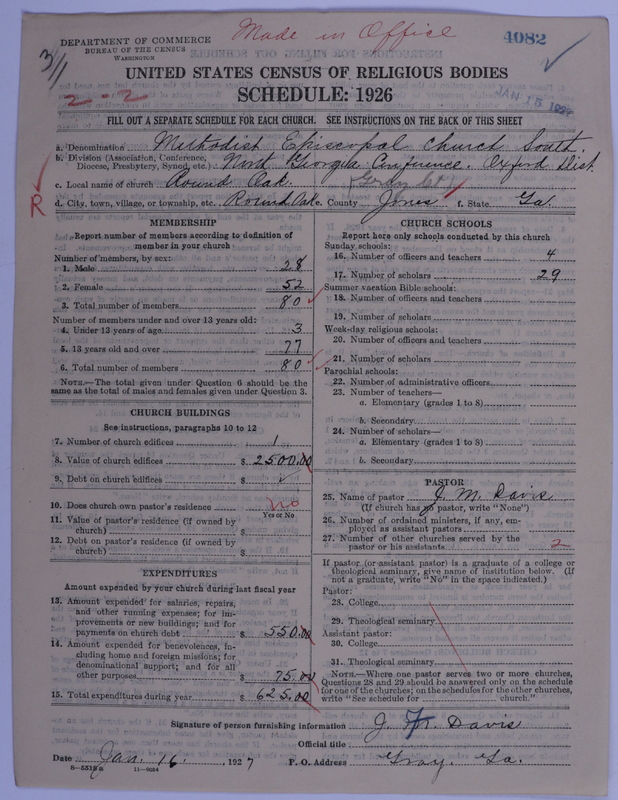 Made in Office
DEPARTMENT OF COMMERCE
BUREAU OF THE CENSUS
WASHINGTON
4082
3/1
2-2
UNITED STATES CENSUS OF RELIGIOUS BODIES
SCHEDULE: 1926
JAN 15 1927
FILL OUT A SEPARATE SCHEDULE FOR EACH CHURCH. SEE INSTRUCTIONS ON THE BACK OF THIS SHEET
a. Denomination Methodist Episcopal Church South.
b. Division (Association, Conference, Diocese, Presbytery, Synod, etc.) North Georgia Conference. Oxford Dist.
c. Local name of church Round Oak.
R
d. City, town, village, or township, etc. Round Oak e. County Jones f. State Ga.
MEMBERSHIP
Report number of members according to definition of
member in your church
Number of members, by sex:
1. Male 28
2. Female 52
3. Total number of members 80
Number of members under and over 13 years old:
4. Under 13 years of age 3
5. 13 years old and over 77
6. Total number of members 80
NOTE.—The total given under Question 6 should be the
same as the total of males and females given under Question 3.
CHURCH BUILDINGS
See instructions, paragraphs 10 to 12
7. Number of church edifices 1
8. Value of church edifices $ 2500.00
9. Debt on church edifices $
10. Does church own pastor's residence no
Yes or No
11. Value of pastor's residence (if owned by
church) $
12. Debt on pastor's residence (if owned by
church) $
EXPENDITURES
Amount expended by your church during last fiscal year
13. Amount expended for salaries, repairs,
and other running expenses; for im-
provements or new buildings; and for
payments on church debt $ 550.00
14. Amount expended for benevolences, in-
cluding home and foreign missions; for
denominational support; and for all
other purposes 75.00
15. Total expenditures during year $ 625.00
CHURCH SCHOOLS
Report here only schools conducted by this church
Sunday schools:
16. Number of officers and teachers 4
17. Number of scholars 29
Summer vacation Bible schools:
18. Number of officers and teachers
19. Number of scholars
Week-day religious schools:
20. Number of officers and teachers
21. Number of scholars
Parochial schools:
22. Number of administrative officers
23. Number of teachers—
a. Elementary (grades 1 to 8)
b. Secondary
24. Number of scholars—
a. Elementary (grades 1 to 8)
b. Secondary
PASTOR
25. Name of pastor J. M. Davis
(If church has no pastor, write "None")
26. Number of ordained ministers, if any, em-
ployed as assistant pastors
27. Number of other churches served by the
pastor or his assistants 2
If pastor (or assistant pastor) is a graduate of a college or
theological seminary, give name of institution below. (If
not a graduate, write "No" in the space indicated.)
Pastor:
28. College
29. Theological seminary
Assistant pastor:
30. College
31. Theological seminary
NOTE.—Where one pastor serves two or more churches,
Questions 28 and 29 should be answered only on the schedule
for one of the churches; on the schedules for the other churches,
write "See schedule for church."
Signature of person furnishing information J. M. Davis
Official title
Date Jan. 16, 1927 P. O. Address Gray. Ga.
8-551Sa 11-9054